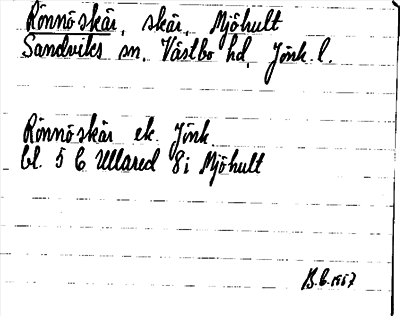 Rönnöskär, skär, Mjöhult
Sandviks sn, Västbo hd, Jönk. l.
Rönnöskär ek. Jönk.
bl. 5 C Ullared 8i Mjöhult
B.G. 1967